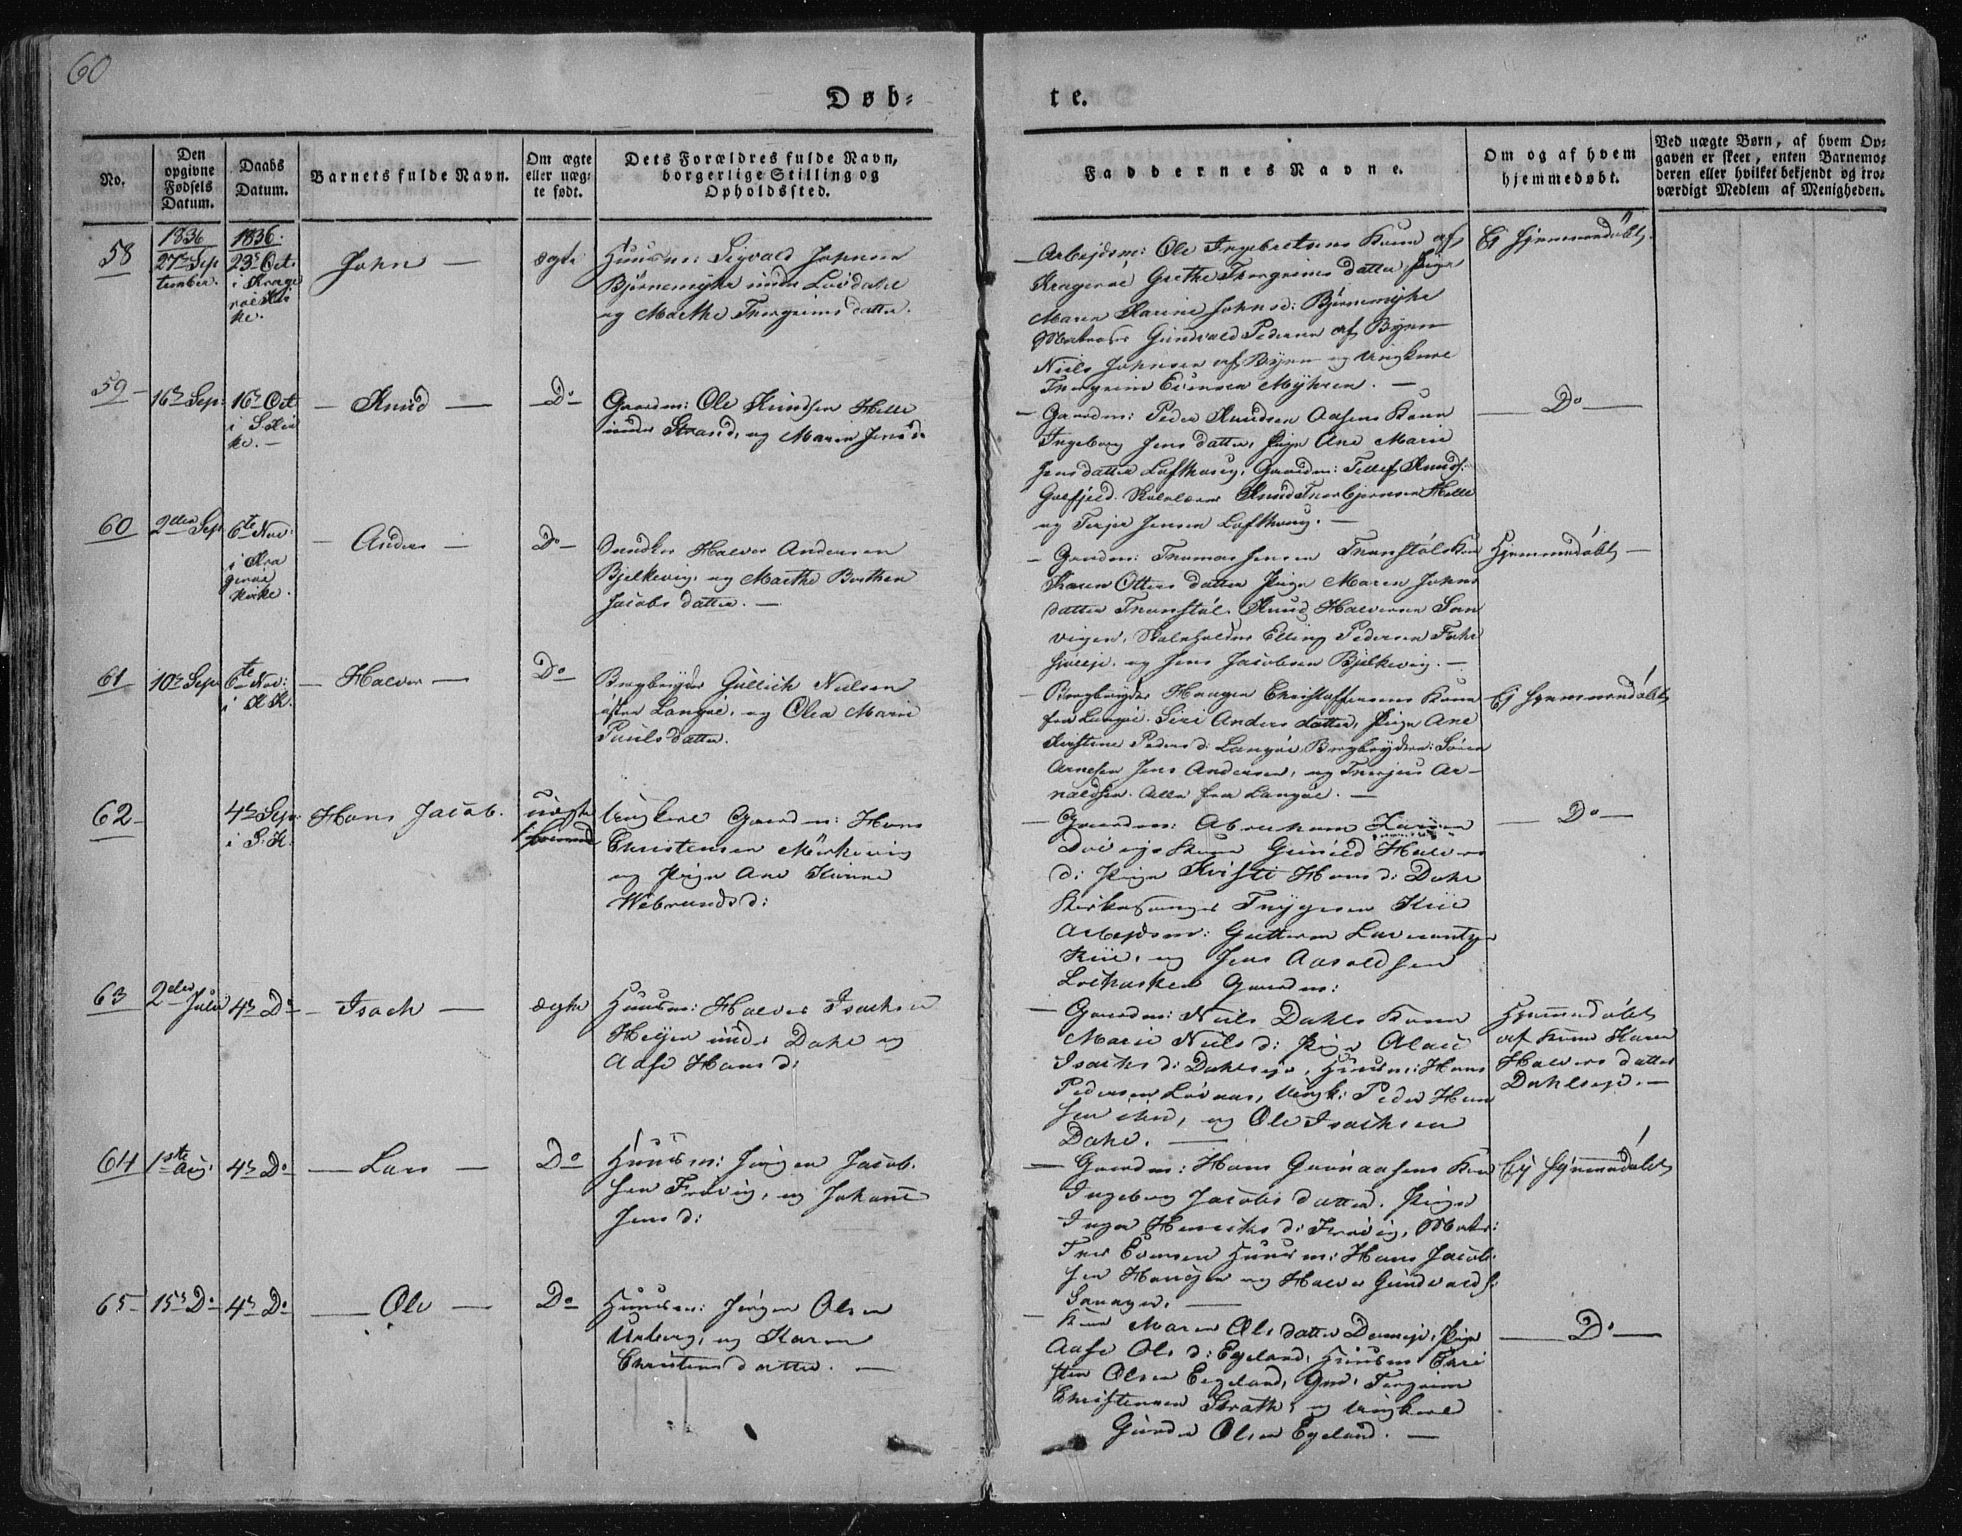 60
Døb=
te.
No.
Den opgivne Fødsels Datum.
Daabs Datum.
Barnets fulde Navn.
Om ægte eller uægte født.
Dets Forældres fulde Navn, borgerlige Stilling og Opholdssted.
Faddernes Navne.
Om og af hvem hjemmedøbt.
Ved uægte Børn, af hvem Opgaven er skeet, enten Barnemoderen eller hvilket bekjendt og troværdigt Medlem af Menigheden.
58
1836
27de Sep
tember.
1836.
23de Oct.
i Krage
røe Kir
ke.
John —
ægte
Huusm: Sigvald Johnsen
Bjørnemyhr under Lovdahl
og Marthe Thorgrims datter.
— Arbejdsm: Ole Ingebretsens Kone af
Kragerøe Grethe Thorgrims datter, Pige
Maren Karine Johns d: Bjørnemyhr
Matros Gundvald Pedersen af Byen
Niels Johnsen af Byen og Ungkarl
Thorgrim Evensen Myhren. —
Ej hjemmedøbt.
59 —
16de Sep.
16de Oct
i S. Kir
ke. —
— Knud —
Do —
Gaardm: Ole Knudsen Helle
under Strand, og Maren Jens d:
— Gaardm: Peder Knudsen Aasens Kone
Ingeborg Jens datter, Pige Ane Marie
Jens datter Lofthoug, Gaardm: Tellef Knuds:
Skolelærer Knud Thorbjørnsen Helle
og Terje Jensen Lofthoug. —
— Do —
60
2den Sep
6te Nov:
i Kra
gerøe
Kirke.
— Anders —
Do —
Halvor Andersen
Bjelkevig, og Marthe Berthea
Jacobs datter. —
— Gaardm: Thomas Jensen Kone
Karen Otters datter Pige Maren Johns
datter Knud Halvorsen San
vigen, Skoleholder Elling Pedersen
og Jens Jacobsen Bjelkevig. —
Hjemmedøbt —
61
10de Sep.
6te Nov:
i K. K.
— Halvor —
Do
Bergbryder Gullich Nielsen
Langøe, og Olea Marie
Pauls datter.
— Bergbryder Haagen Christoffersens Kone
fra Langøe. Siri Anders datter, Pige Ane
Kirstine Peders d: Langøe, Bergbryderne: Søren
Arnesen Jens Andersen, og Terjus Ar-
noldsen. Alle fra Langøe. —
Ej hjemmedøbt
62 —
4de Sep:
i S. K.
Hans Jacob.
uægte
Ungkarl Gaardm: Hans
Christensen Mörkevig
og Pige Ane Kirine
Webrands d:
— Gaardm: Abraham
Kone Gunild Halvors
d: Pige Kirsti Hans d: Dahl
Kirkesanger Trygesen Kiil
Arbejdsm: Guttorm Laurantz
Kiil, og Jens Aaroldsen
Gaardm:
— Do —
63
2den
Julii
4de Do
— Isach —
ægte
Huusm: Halvor Isachsen
Hejen under Dahl og
Aase Hans d:
— Gaardm: Niels Dahls Kone
Marie Niels d: Pige
Isachs d: Dahlseje, Huusm: Hans
Pedersen Løvaas, Ungk: Peder Han
sen og Ole Isachsen
Dahl. —
Hjemmedøbt
af Kone Karen
Halvors datter
Dahlseje. —
64
1ste
Aug.
4de Do
— Lars —
Do
Huusm: Jörgen Jacob
sen Frøvig, og Johanne
Jens d:
— Gaardm: Hans Gunnaasens Kone
Ingeborg Jacobs datter. Pige
Inger Henriks d: Frøvig, Matr:
Thor Evensen Huusm: Hans Jacob-
sen og Halvor Gundvalds:
—
Ej hjemmedøbt
65 —
15de Do
4de Do
— Ole —
Do
Huusm: Jörgen Olsen
Urberg, og Karen
Christens datter. —
— Kone Maren Ols datter Pige
Aase Ols d: Egeland, Huusm Chri
sten Olsen Egeland, Gm: Torgrim
Christensen og Ungkarl
Gunder Olsen Egeland. —
— Do —